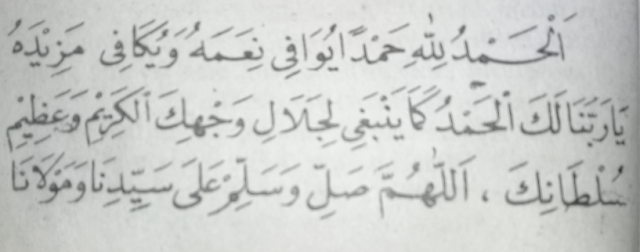 اَلْحَمْدُ لِلّٰهِ حَمْدًا يُوَافِى نِعَمَهُ وَيُكَافِى مَزِيْدَهُ
يَا رَبَّنَا لَكَ الْحَمْدُ كَمَا يَنْبَغِى لِجَلَالِ وَجْهِكَ الْكَرِيْمِ وَعَظِيْمِ
سُلْطَانِكَ ، اَللّٰهُمَّ صَلِّ وَسَلِّمْ عَلَى سَيِّدِنَا وَمَوْلَانَا